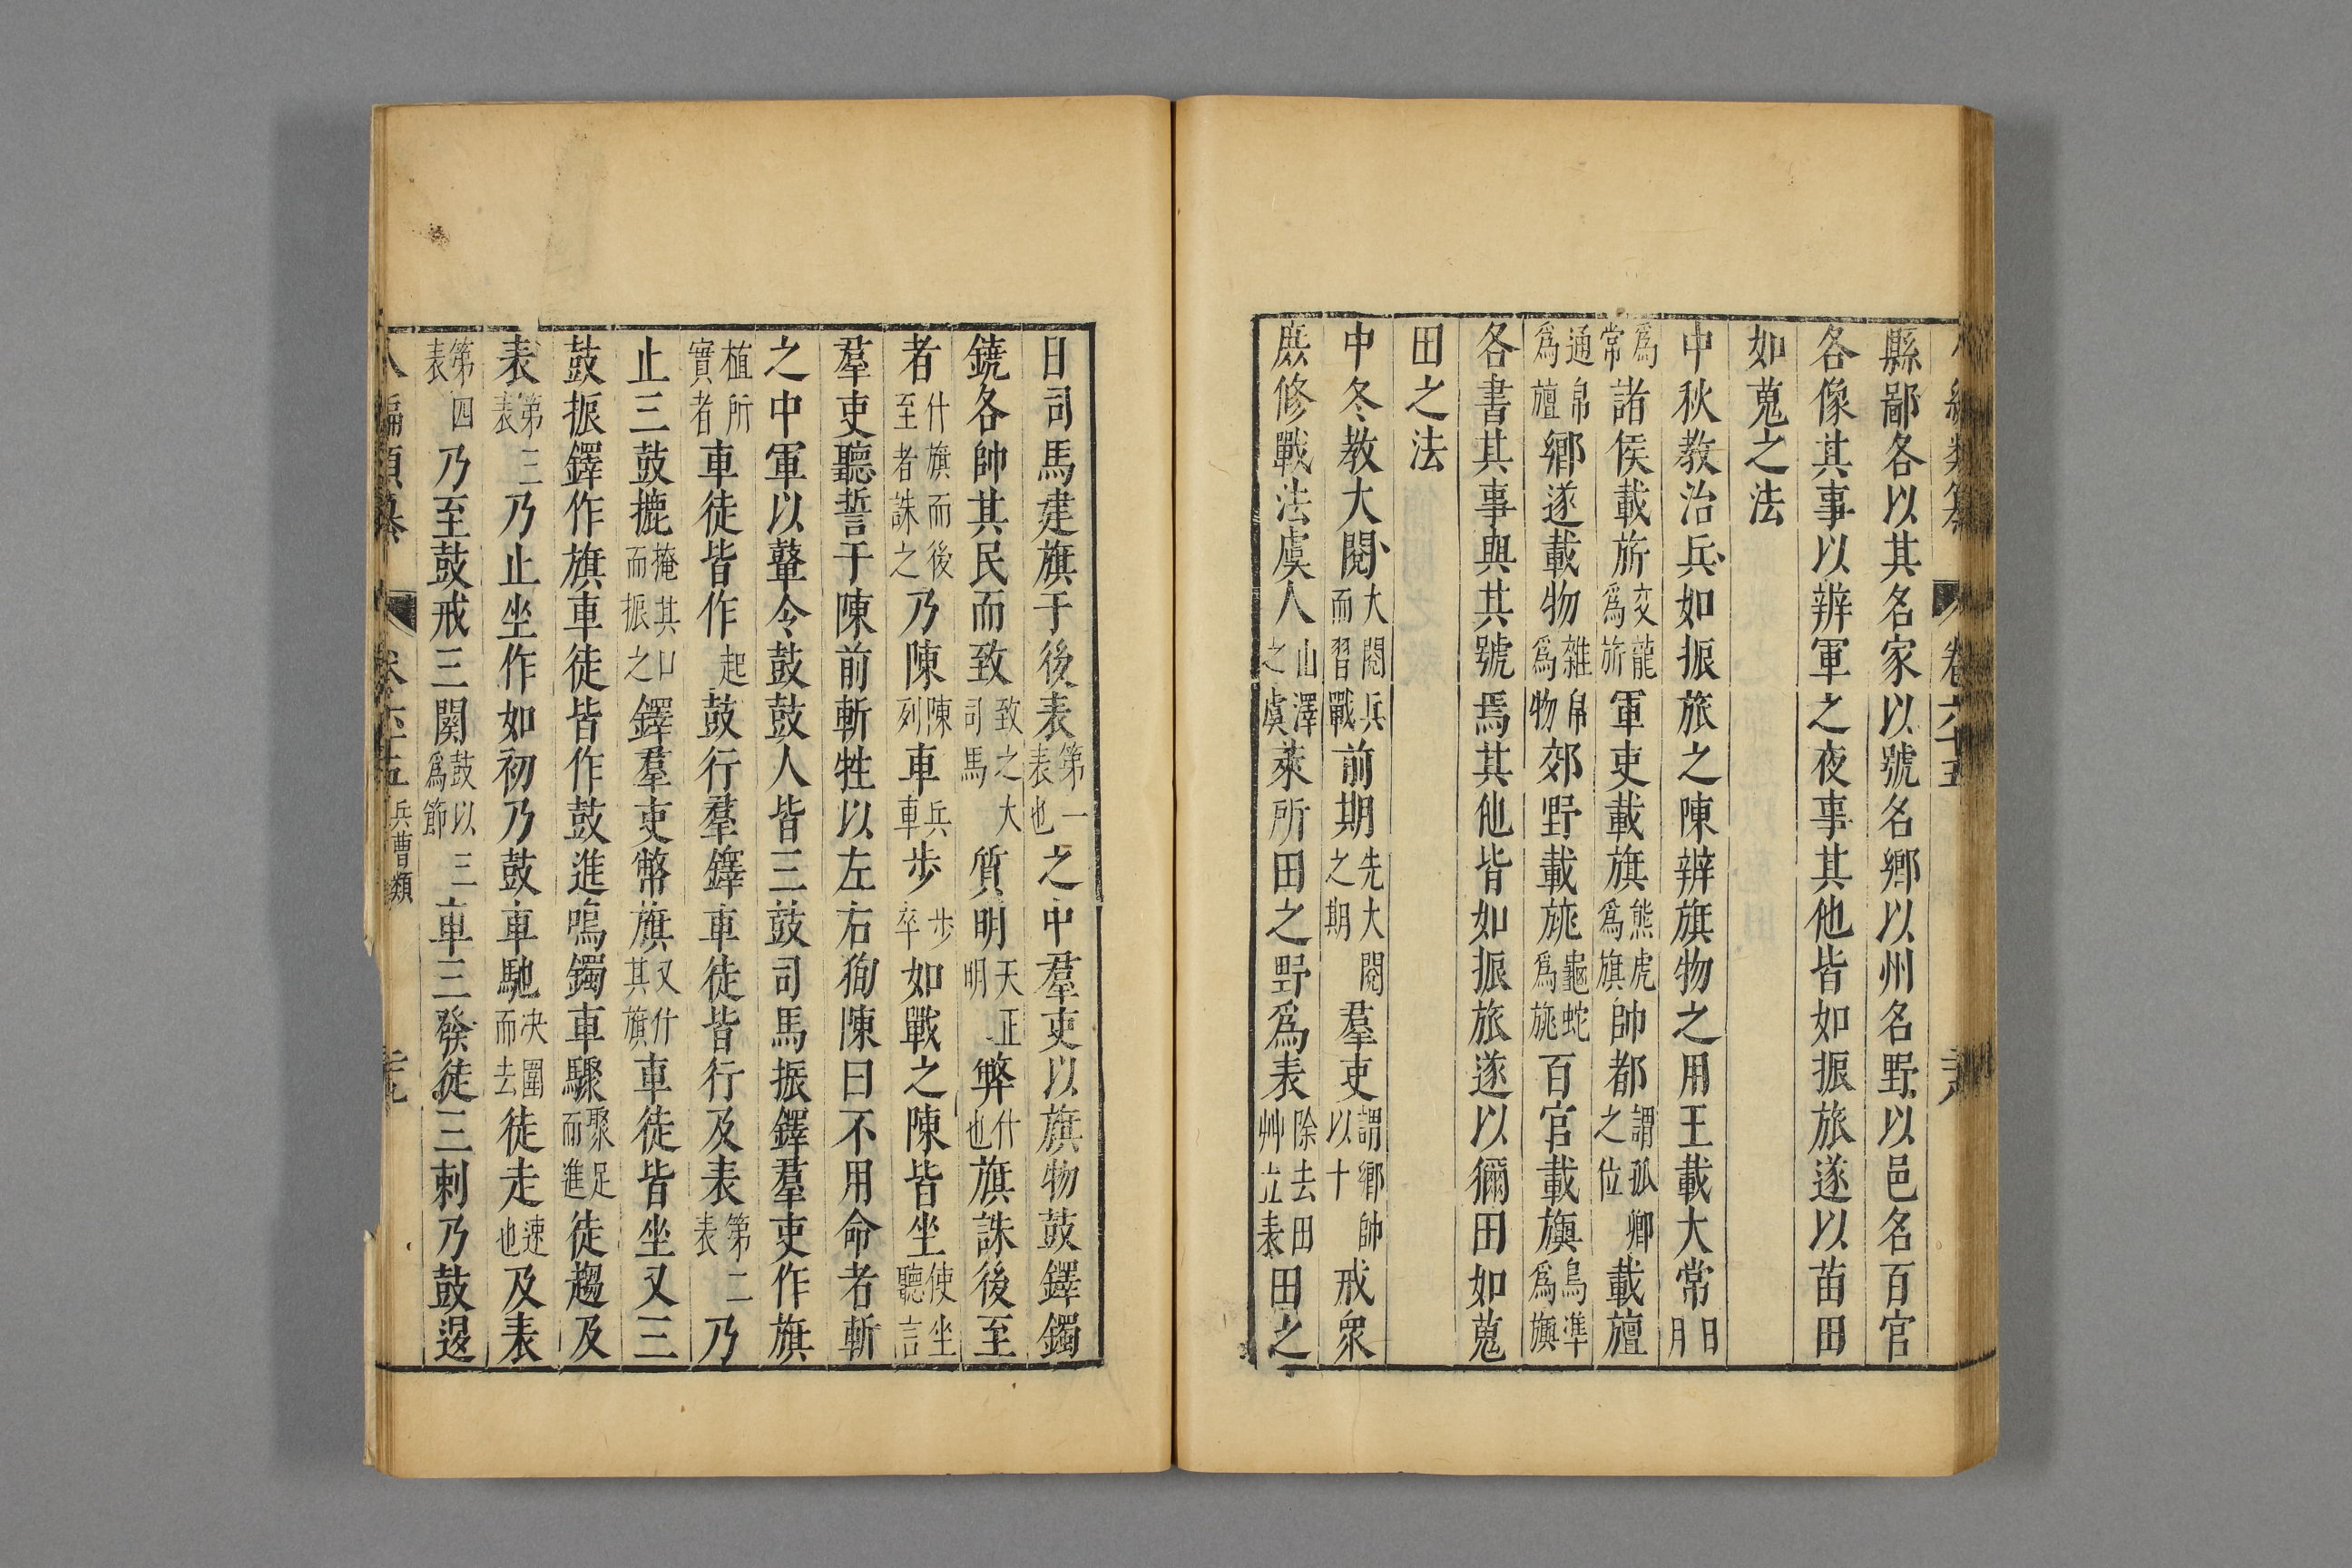 縣鄙各以其名家以號名鄉以州名野以邑名百官
各像其事以辨軍之夜事其他皆如振旅遂以苗田
如蒐之法
中秋教治兵如振旅之陳辨旗物之用王載大常日月
爲常諸侯載旂交龍爲旂軍吏載旗熊虎爲旗帥都謂孤卿之位載旜
通帛爲旜鄉遂載物雜帛爲物郊野載旐龜蛇爲旐百官載旟鳥準爲旟
各書其事與其號焉其他皆如振旅遂以獮田如蒐
田之法
中冬教大閱大閱兵而習戰前期先大閱之期羣吏謂鄉帥以十戒衆
庶修戰法虞人山澤之虞萊所田之野爲表除去田艸立表田之
日司馬建旗于後表第一表也之中羣吏以旗物鼓鐸鐲
鐃各帥其民而致致之大司馬質明天正明弊什也旗誅後至
者什旗而後至者誅之乃陳陳列車兵車步步卒如戰之陳皆坐使坐聽言
羣吏聽誓于陳前斬牲以左右徇陳曰不用命者斬
之中軍以鼙令鼓鼓人皆三鼓司馬振鐸羣吏作旗
植所實者車徒皆作起鼓行羣鐸車徒皆行及表第二表乃
止三鼓摝掩其口而振之鐸羣吏幣旗又什其旗車徒皆坐又三
鼓振鐸作旗車徒皆作鼓進鳴鐲車驟聚足而進徒趨及
表第三表乃止坐作如初乃鼓車馳决圍而去徒走速也及表
第四表乃至鼓戒三闋鼓以爲節三車三發徒三刺乃鼓退
卷六十五 兵曹類